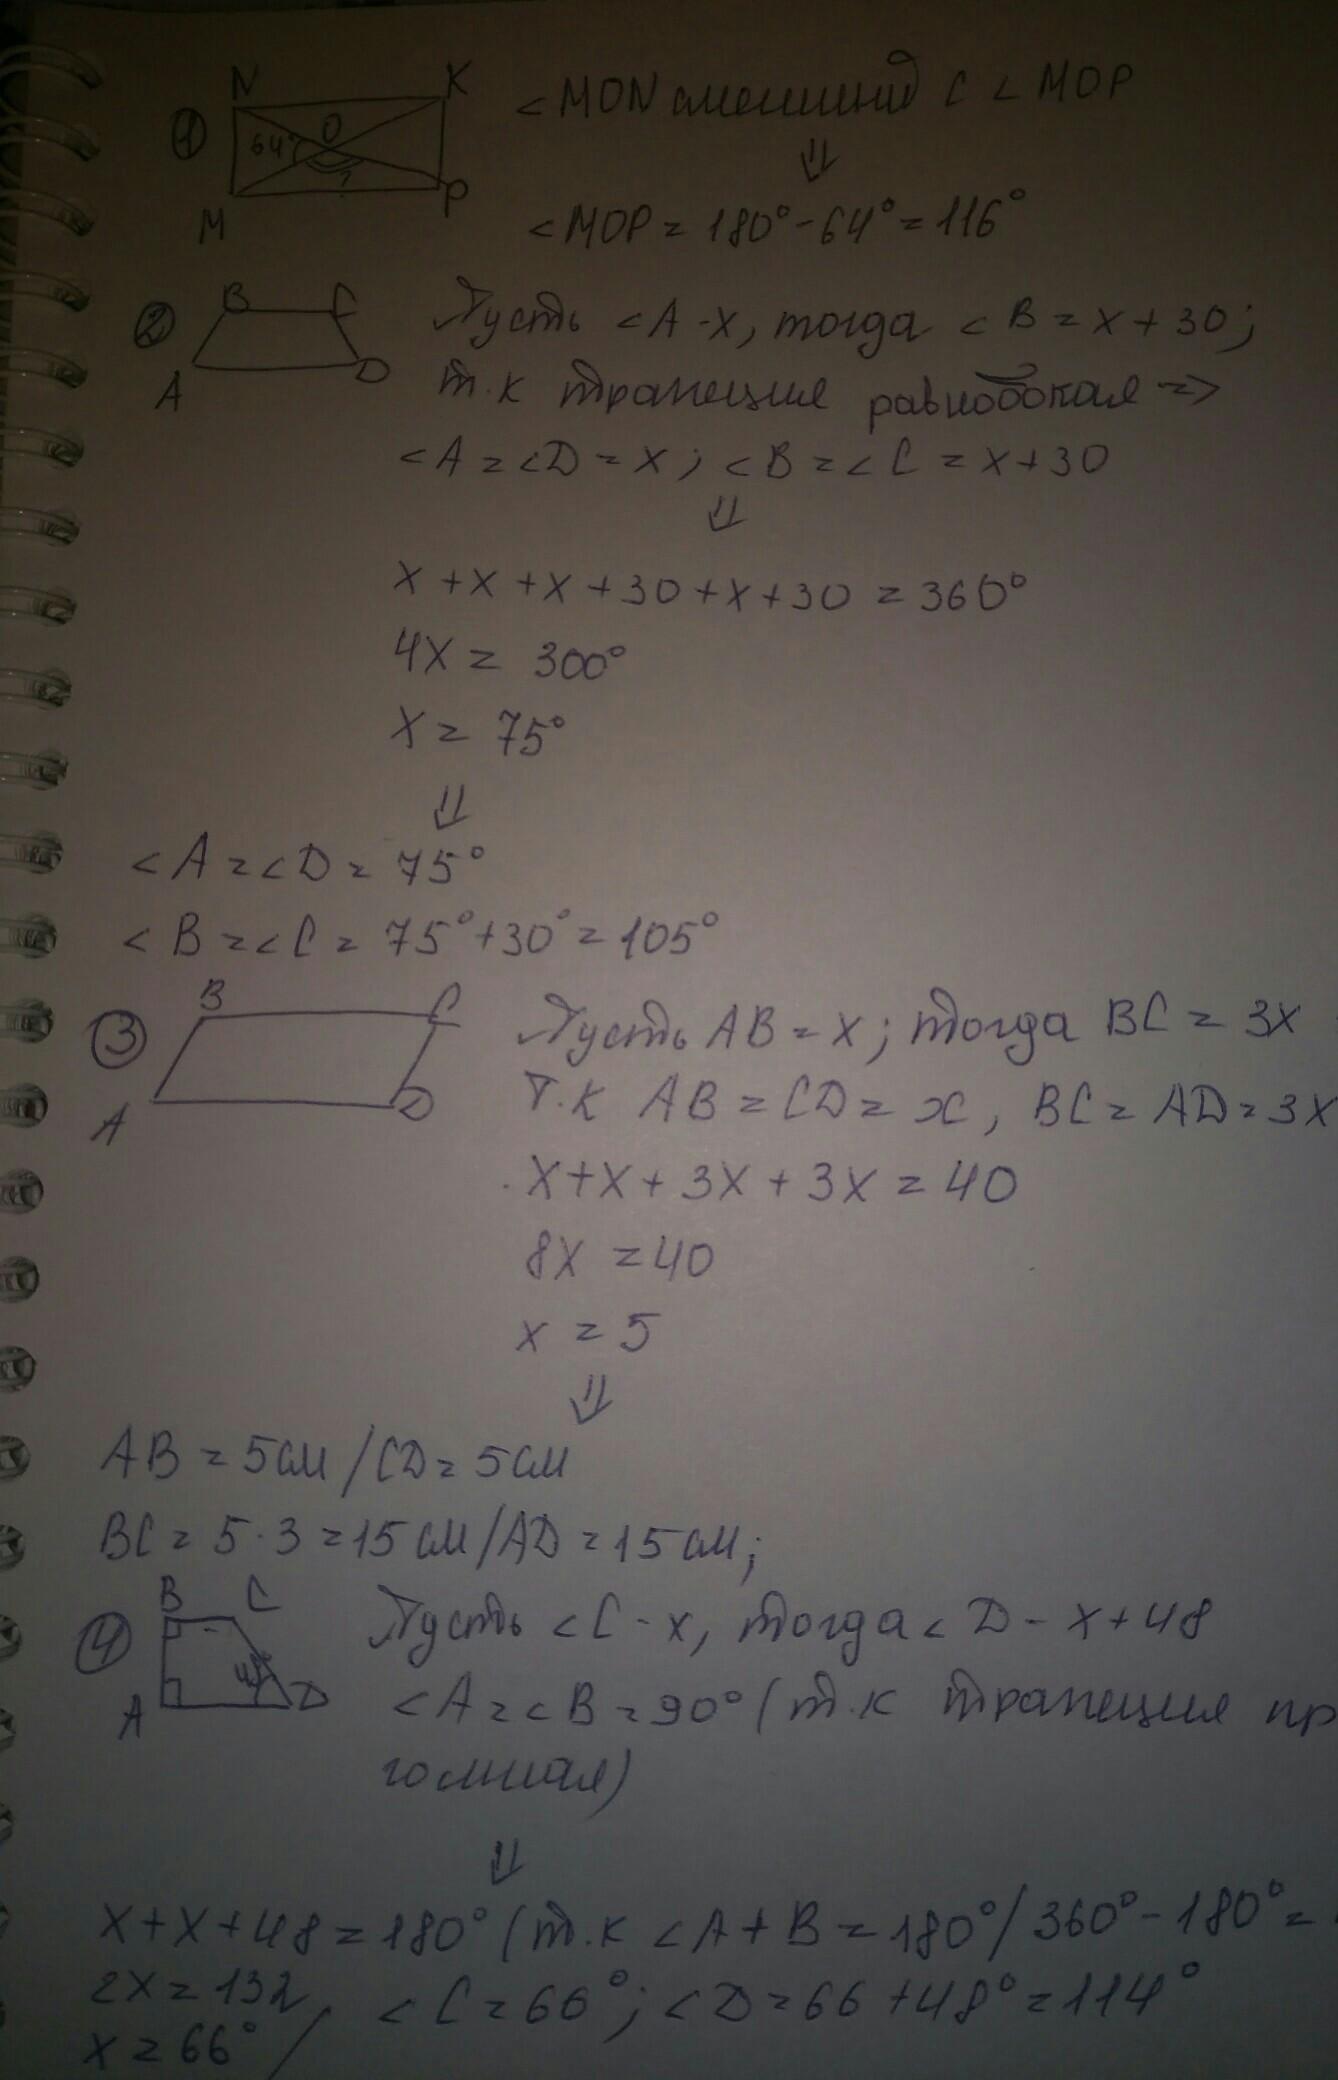 N K
① 64° O ?
M P
<MON смежный с <MOP
⇓
<MOP = 180° - 64° = 116°
② B C
A D
Пусть <A - x, тогда <B = x + 30;
т.к трапеция равнобокая =>
<A = <D = x; <B = <C = x + 30
⇓
x + x + x + 30 + x + 30 = 360°
4x = 300°
x = 75°
⇓
<A = <D = 75°
<B = <C = 75° + 30° = 105°
③ B C
A D
Пусть AB = x; тогда BC = 3x
Т.к AB = CD = x, BC = AD = 3x
x + x + 3x + 3x = 40
8x = 40
x = 5
⇓
AB = 5см / CD = 5см
BC = 5 · 3 = 15 см / AD = 15 см;
④ B C
A D
Пусть <C - x, тогда <D - x + 48
<A = <B = 90° (т.к трапеция пр
гольная)
⇓
x + x + 48 = 180° (т.к <A + B = 180° / 360° - 180° =
2x = 132
x = 66° / <C = 66°; <D = 66 + 48° = 114°